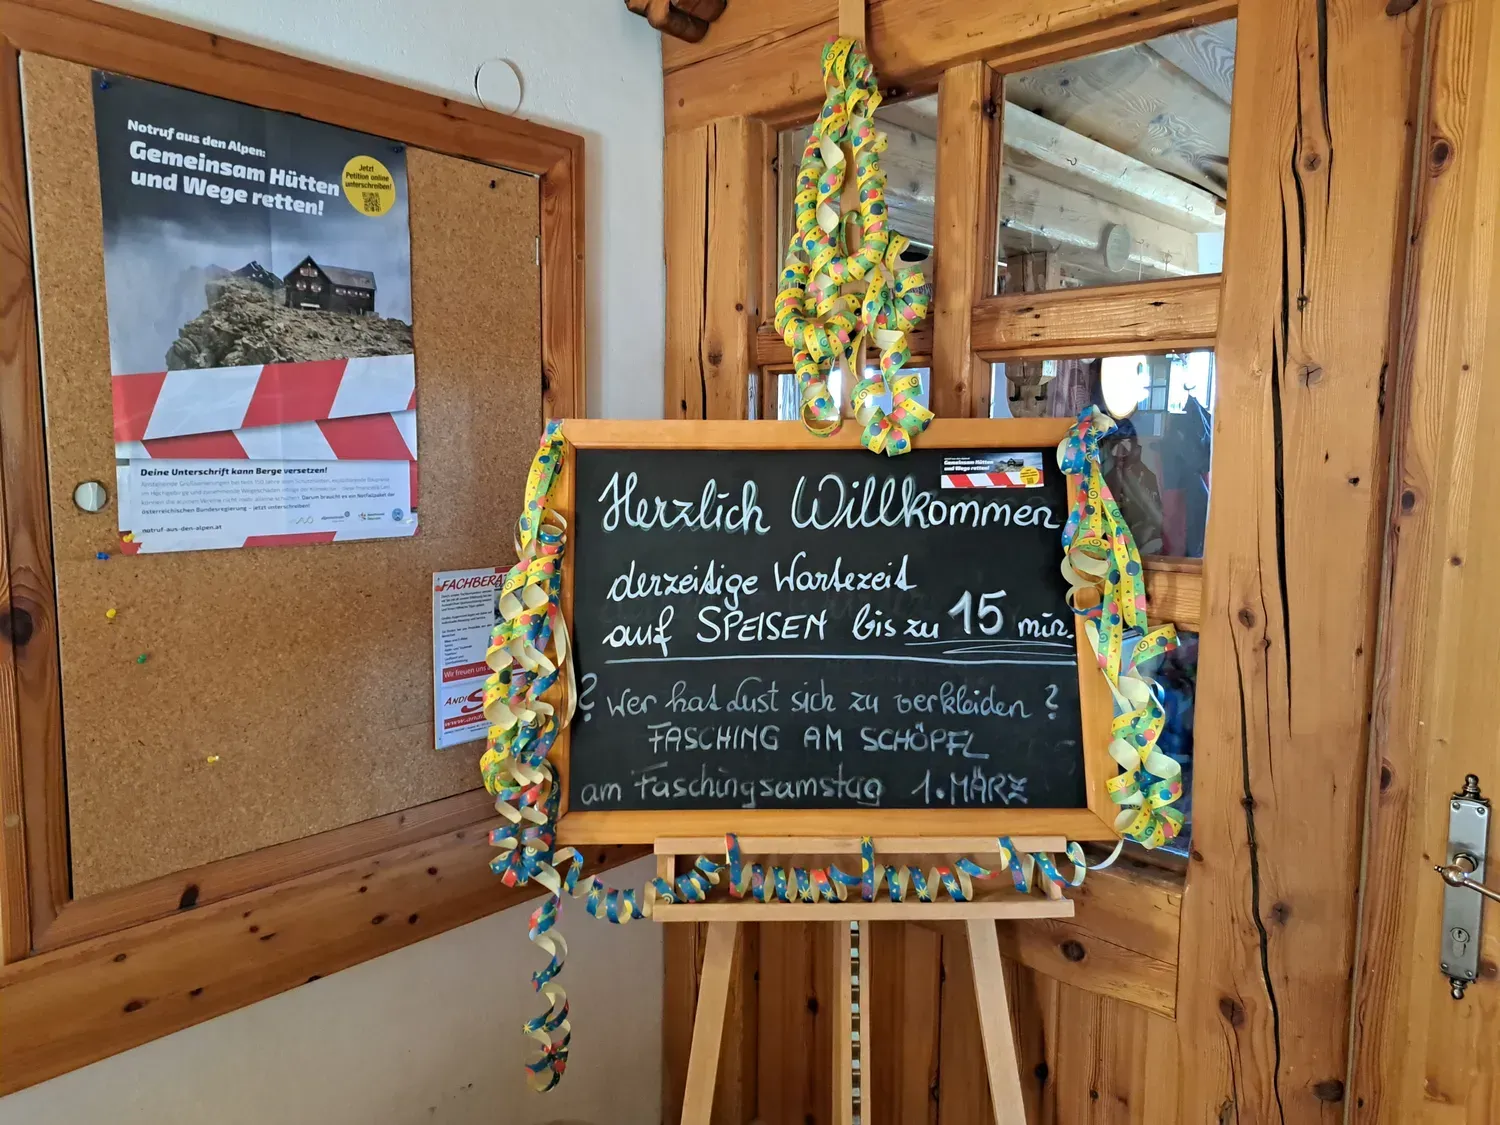 Notruf aus den Alpen:
Gemeinsam Hütten
und Wege retten!
Jetzt
Petition online
unterschreiben!
Deine Unterschrift kann Berge versetzen!
österreichischen Bundesregierung – jetzt unterschreiben!
notruf-aus-den-alpen.at
FACHBERA
Wir freuen uns
ANDI
www.andi
Herzlich Willkommen
Gemeinsam Hütten
und Wege retten!
derzeitige Wartezeit
auf SPEISEN bis zu 15 min.
? Wer hat Lust sich zu verkleiden ?
FASCHING AM SCHÖPFL
am Faschingsamstag 1. MÄRZ